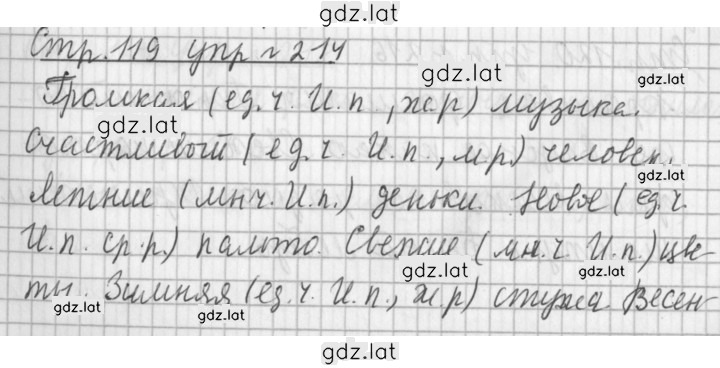 gdz.lat
Стр. 119 упр № 214
gdz.lat
gdz.lat
Громкая (ед.ч. И.п., ж.р) музыка.
gdz.lat
Счастливый (ед.ч. И.п., м.р.) человек.
gdz.lat
Летние (мн.ч. И.п.) деньки. Новое (ед.ч.
И.п. ср.р.) пальто. Свежие (мн.ч. И.п.) цве-
gdz.lat
gdz.lat
ты. Зимняя (ед.ч. И.п., ж.р) стужа. Весен-
gdz.lat
gdz.lat